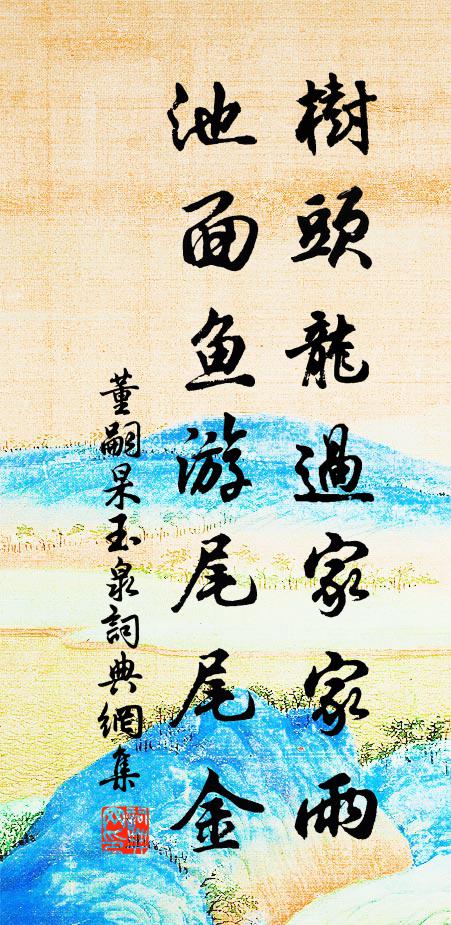 樹頭龍過家家雨
池面魚游尾尾金
董嗣杲玉泉詞典網集